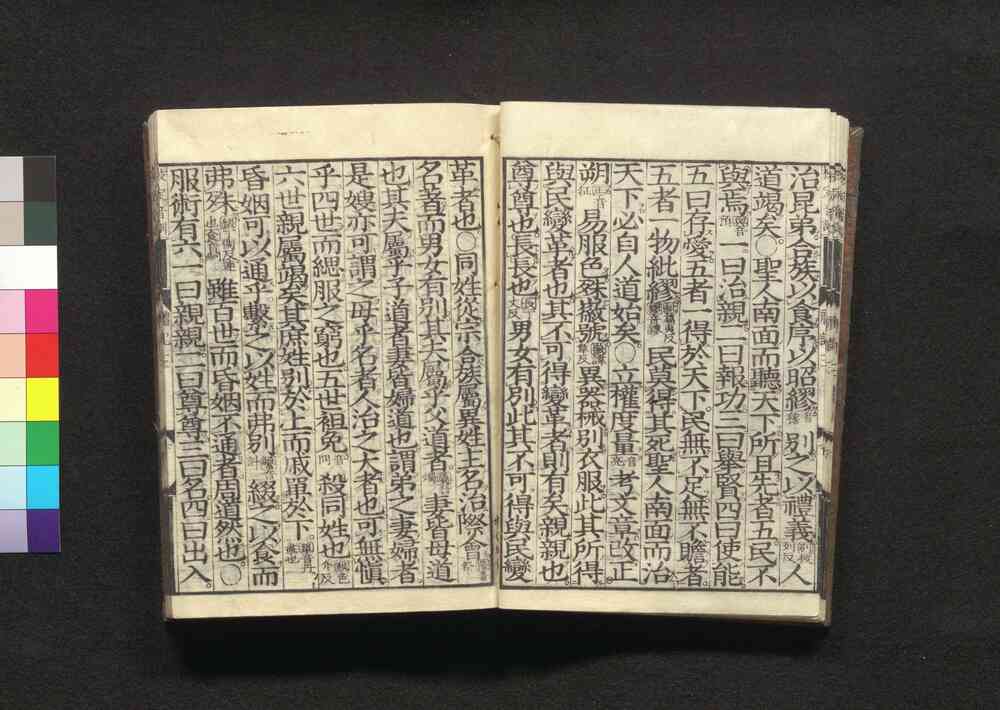 治昆弟合族以食序以昭繆音穆別之以禮義別彼列反人
道竭矣○聖人南面而聽天下所且先者五民不
與焉與音預一曰治親二曰報功三曰舉賢四曰使能
五曰存愛五者一得於天下民無不足無不贍者
五者一物紕繆民莫得其死聖人南面而治
天下必自人道始矣○立權度量音亮考文章改正
朔正音征易服色殊徽號異器械別衣服此其所得
與民變革者也其不可得變革者則有矣親親也
尊尊也長長也長知丈反男女有別此其不可得與民變
革者也○同姓從宗合族屬異姓主名治際會
名著而男女有別其夫屬乎父道者妻皆母道
也其夫屬乎子道者妻皆婦道也謂弟之妻婦者
是嫂亦可謂之母乎名者人治之大者也可無慎
乎四世而緦服之窮也五世袒免音問殺同姓也殺色介反
六世親屬竭矣其庶姓別於上而戚單於下
昏姻可以通乎繫之以姓而弗別綴之以食而
弗殊雖百世而昏姻不通者周道然也○
服術有六一曰親親二曰尊尊三曰名四曰出入